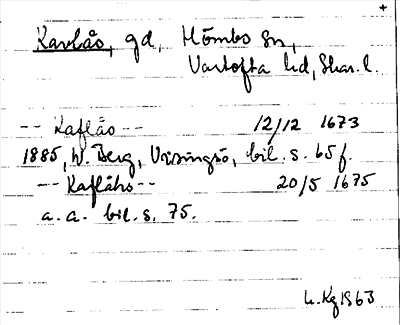 +
Kavlås, gd, Hömbs sn,
Vartofta hd, Skar. l.
-- Kaflås -- 12/12 1673
1885, W. Berg, Visingsö, bil. s. 65 f.
-- Kaflåhs -- 20/5 1675
a. a. bil. s. 75.
Kg 1963